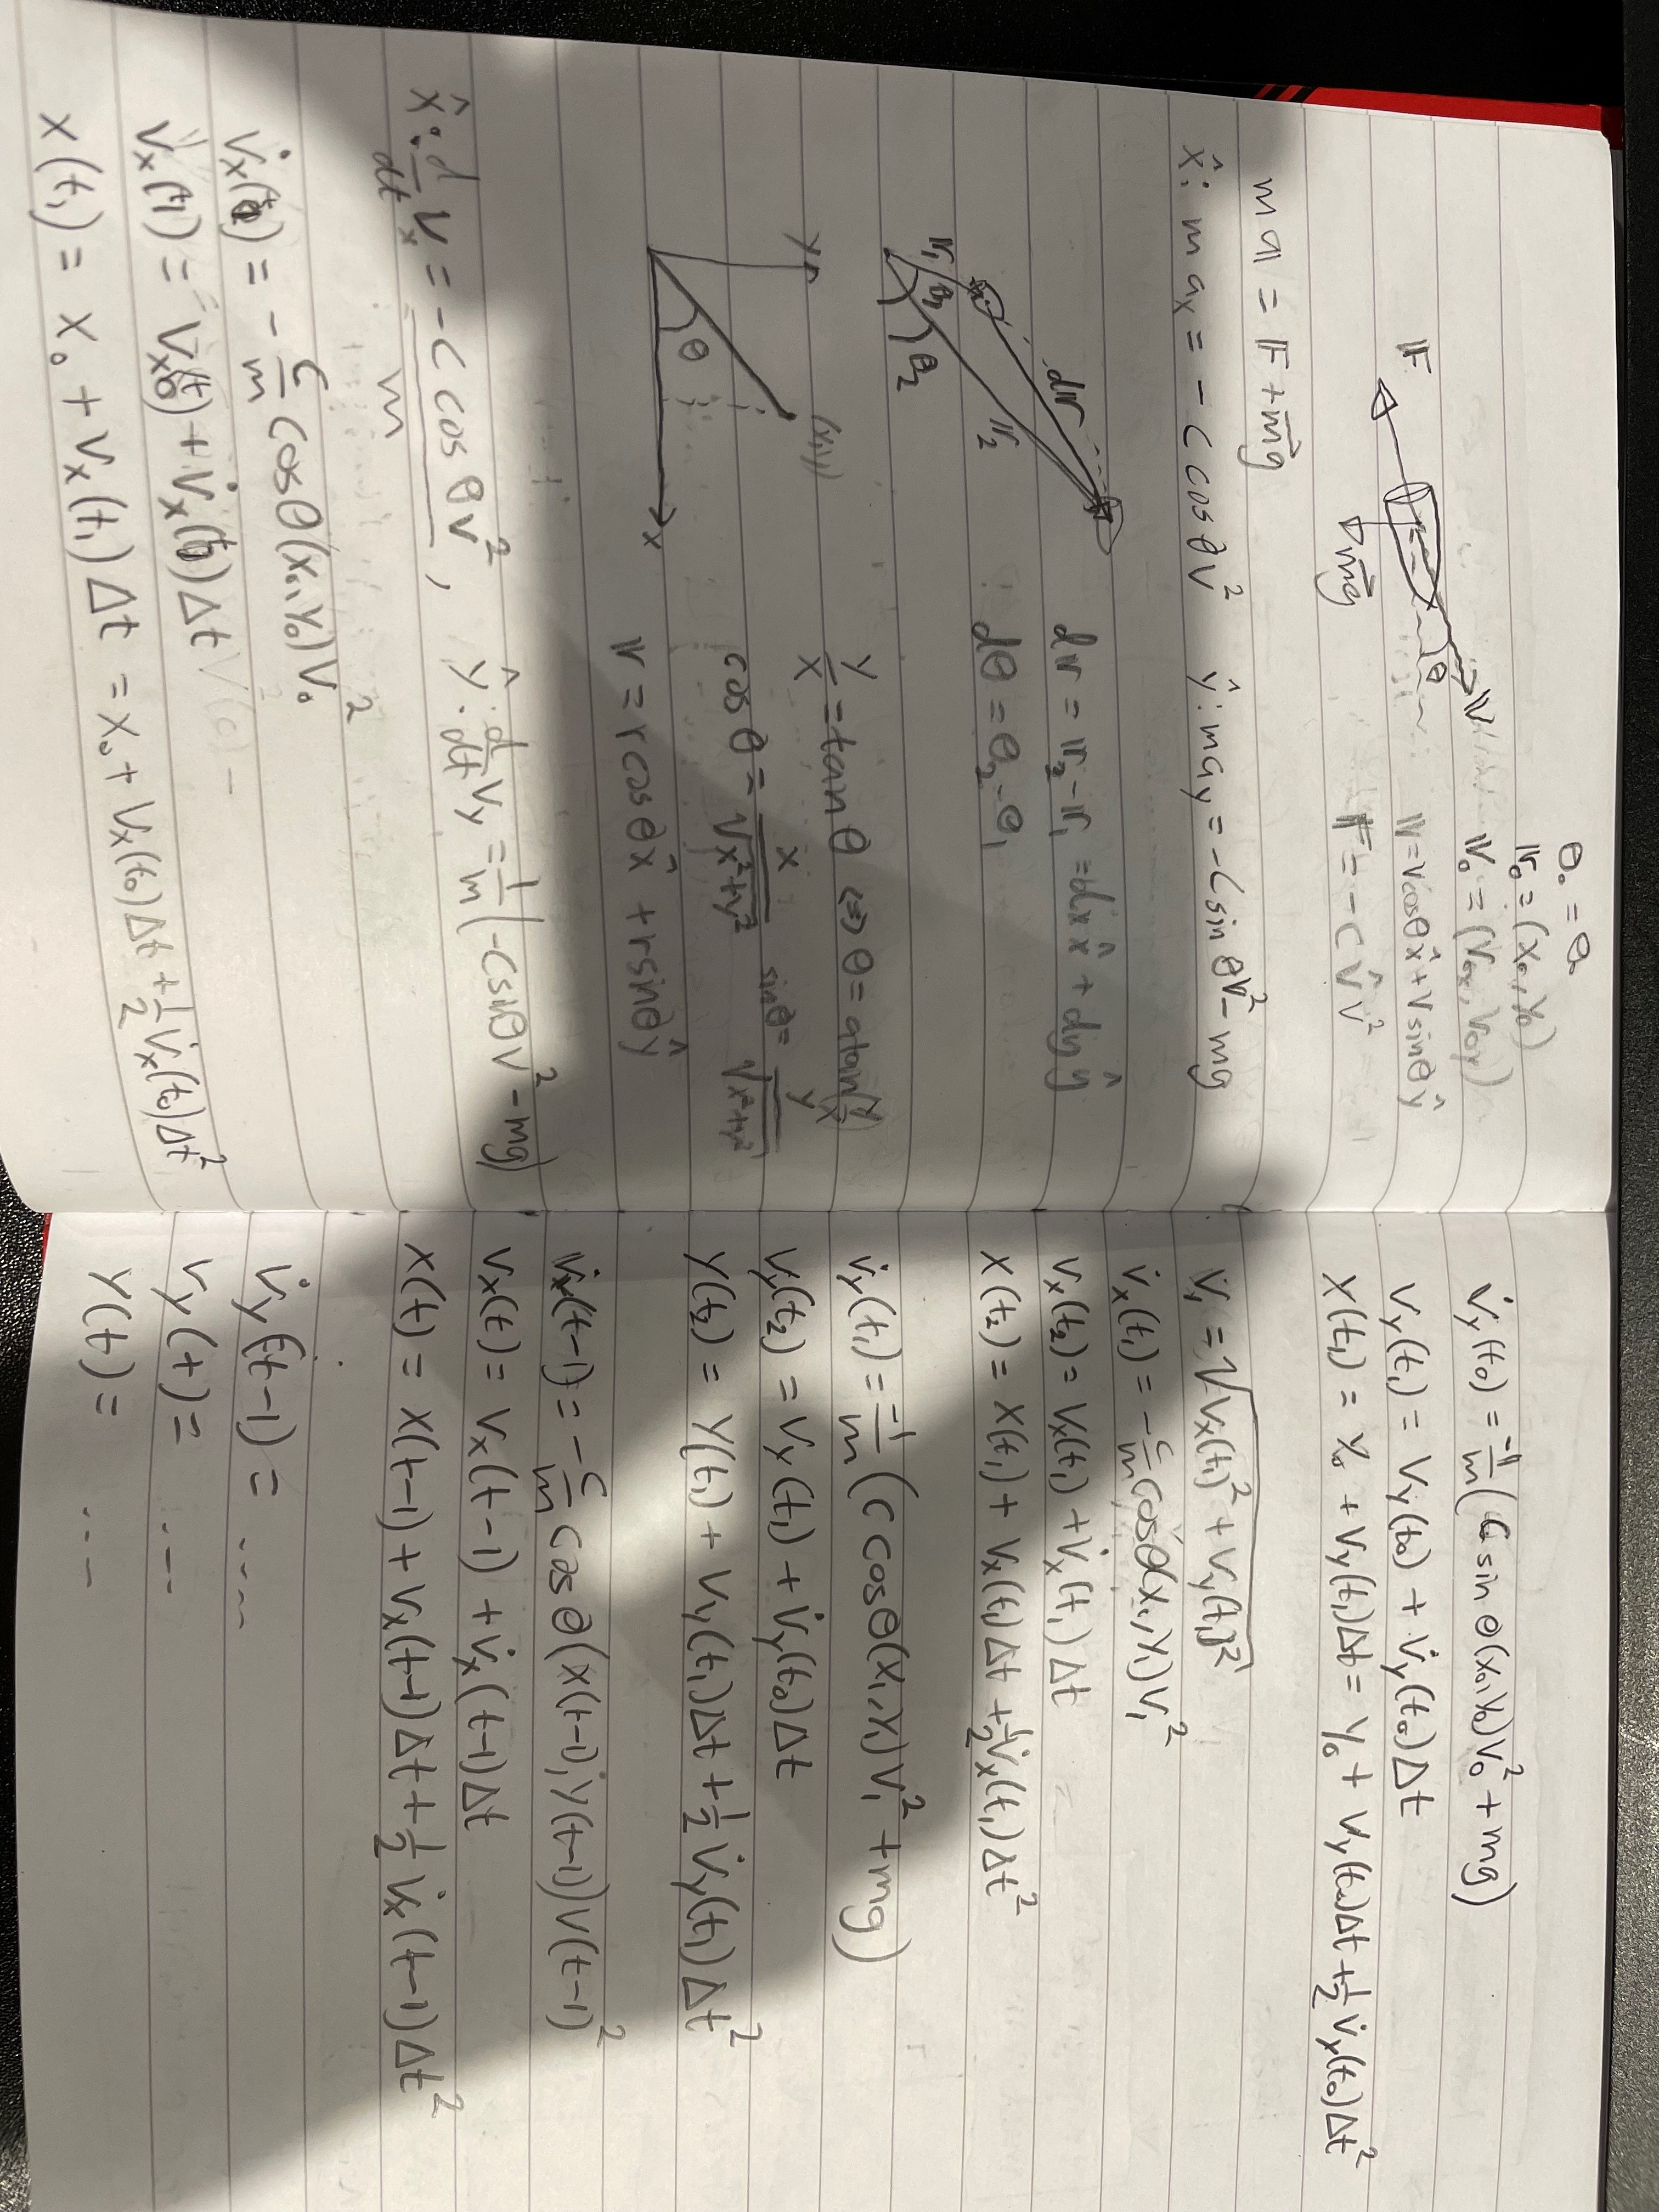 θ₀ = θ₀
𝕣₀ = (x₀, y₀)
𝕍₀ = (V₀ₓ, V₀y)
𝕍
θ
𝕍 = V cosθ x̂ + V sinθ ŷ
𝔽
mg
𝔽 = - C V̂ V²
m𝕒 = 𝔽 + mg
x̂: m aₓ = - C cosθ V² ŷ: m ay = - C sin θV² - mg
d𝕣 = 𝕣₂ - 𝕣₁ = dx x̂ + dy ŷ
dθ = θ₂ - θ₁
𝕣₁ θ₁ d𝕣 𝕣₂ θ₂
y/x = tan θ ⇔ θ = atan(y/x)
y (x,y) θ x
cos θ = x/√(x²+y²) sinθ = y/√(x²+y²)
𝕣 = r cosθ x̂ + r sinθ ŷ
x̂: d/dt Vₓ = - C cos θ V²/m , ŷ: d/dt Vy = 1/m (- C sinθ V² - mg)
V̇ₓ(t₀) = - C/m cosθ(x₀, y₀) V₀²
Vₓ(t₁) = Vₓ(t₀) + V̇ₓ(t₀) Δt
x(t₁) = x₀ + Vₓ(t₁) Δt = x₀ + Vₓ(t₀) Δt + 1/2 V̇ₓ(t₀) Δt²
V̇y(t₀) = -1/m (C sin θ(x₀, y₀) V₀² + mg)
Vy(t₁) = Vy(t₀) + V̇y(t₀) Δt
y(t₁) = y₀ + Vy(t₁) Δt = y₀ + Vy(t₀) Δt + 1/2 V̇y(t₀) Δt²
V₁ = √(Vₓ(t₁)² + Vy(t₁)²)
V̇ₓ(t₁) = - C/m cosθ(x₁, y₁) V₁²
Vₓ(t₂) = Vₓ(t₁) + V̇ₓ(t₁) Δt
x(t₂) = x(t₁) + Vₓ(t₁) Δt + 1/2 V̇ₓ(t₁) Δt²
V̇y(t₁) = -1/m (C cosθ(x₁, y₁) V₁² + mg)
Vy(t₂) = Vy(t₁) + V̇y(t₀) Δt
y(t₂) = y(t₁) + Vy(t₁) Δt + 1/2 V̇y(t₁) Δt²
V̇ₓ(t-1) = - C/m cos θ(x(t-1), y(t-1)) V(t-1)²
Vₓ(t) = Vₓ(t-1) + V̇ₓ(t-1) Δt
x(t) = x(t-1) + Vₓ(t-1) Δt + 1/2 V̇ₓ(t-1) Δt²
V̇y(t-1) = ....
Vy(t) = ....
y(t) = ....